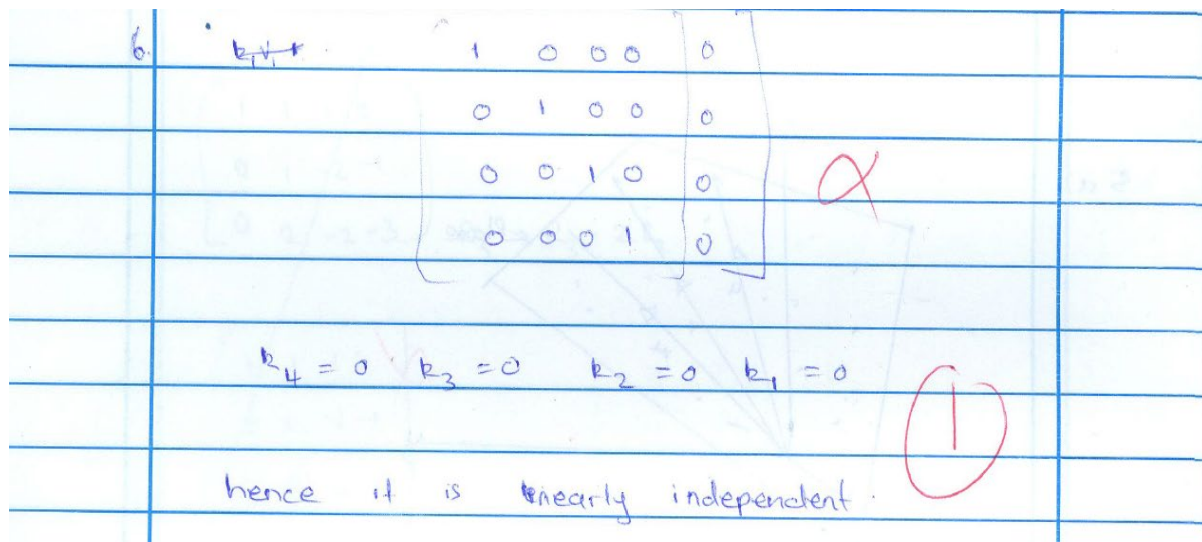 6.
1 0 0 0 0
0 1 0 0 0
0 0 1 0 0
0 0 0 1 0
α
k₄ = 0 k₃ = 0 k₂ = 0 k₁ = 0
1
hence it is linearly independent.